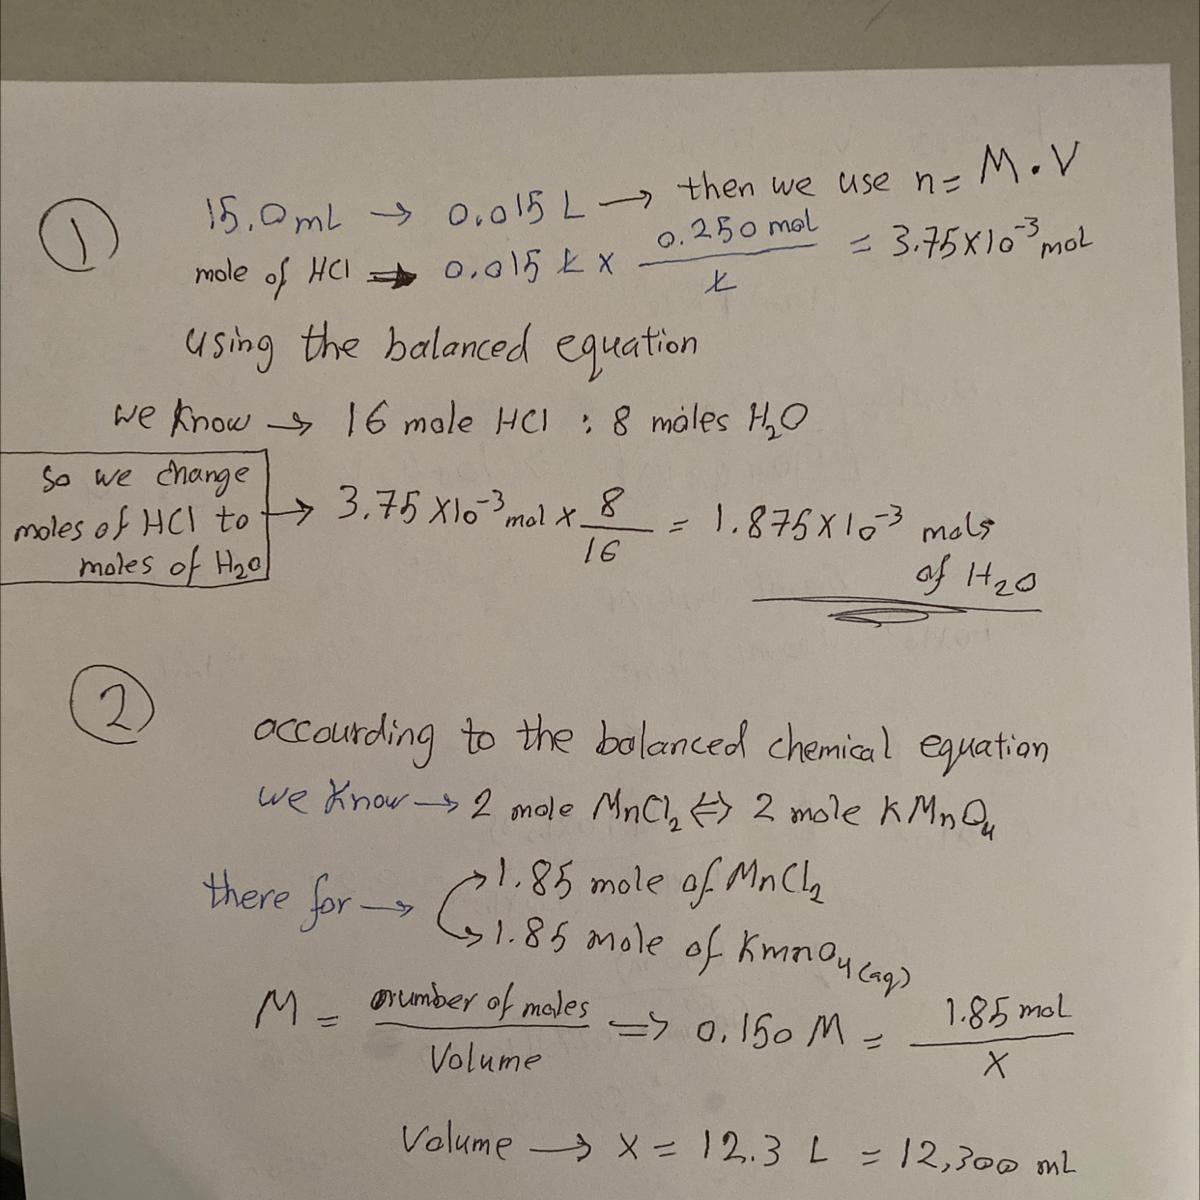 ① 15.0mL → 0.015 L → then we use n = M·V
mole of HCl → 0.015 L x 0.250 mol / L = 3.75x10⁻³ mol
using the balanced equation
we know → 16 mole HCl : 8 moles H₂O
so we change moles of HCl to moles of H₂O → 3.75 x10⁻³ mol x 8/16 = 1.875x10⁻³ mols of H₂O
②
accourding to the balanced chemical equation
we know → 2 mole MnCl₂ ⇔ 2 mole KMnO₄
there for → 1.85 mole of MnCl₂
1.85 mole of KmnO₄(aq)
M = number of moles / Volume ⇒ 0.150 M = 1.85 mol / X
Volume → X = 12.3 L = 12,300 mL